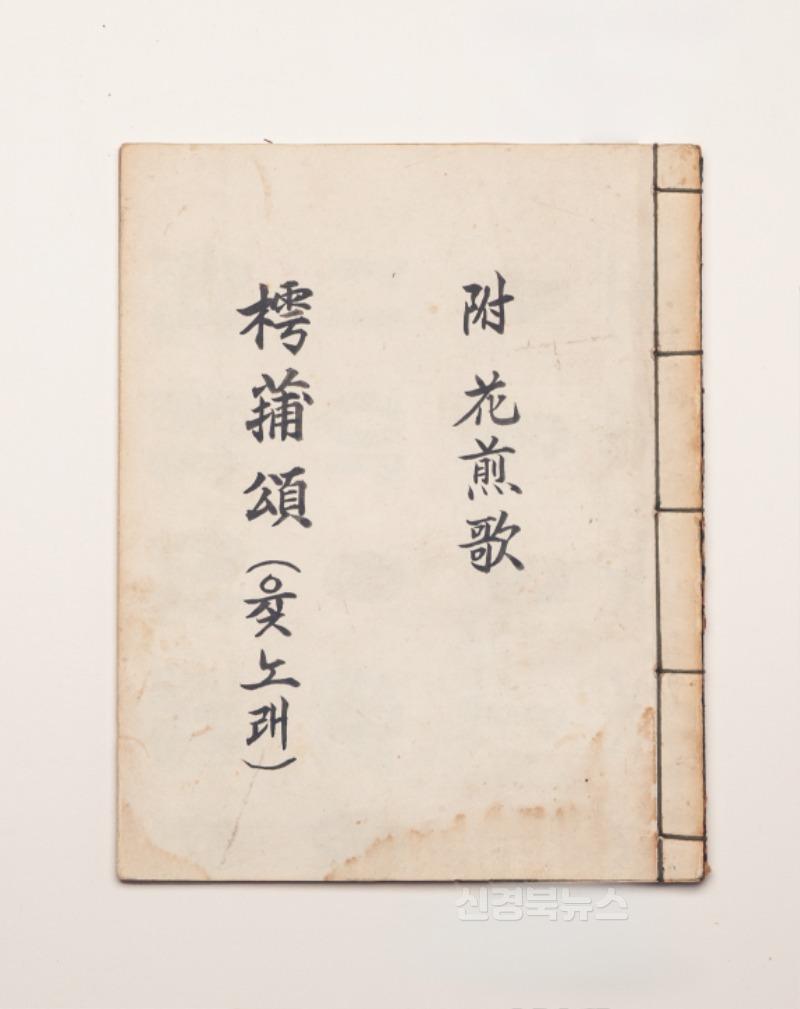 附 花煎歌
樗蒲頌(윷노래)
신경북뉴스